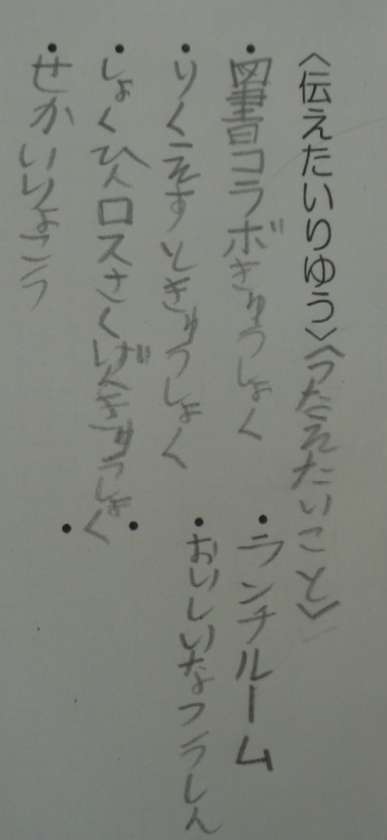 〈伝えたいりゆう〉〈つたえたいこと〉
・図書コラボきゅうしょく
・りくえすときゅうしょく
・しょくひんロスさくげんきゅうしょく
・せかいりょこう
・ランチルーム
・おいしいなフうしん
・
・